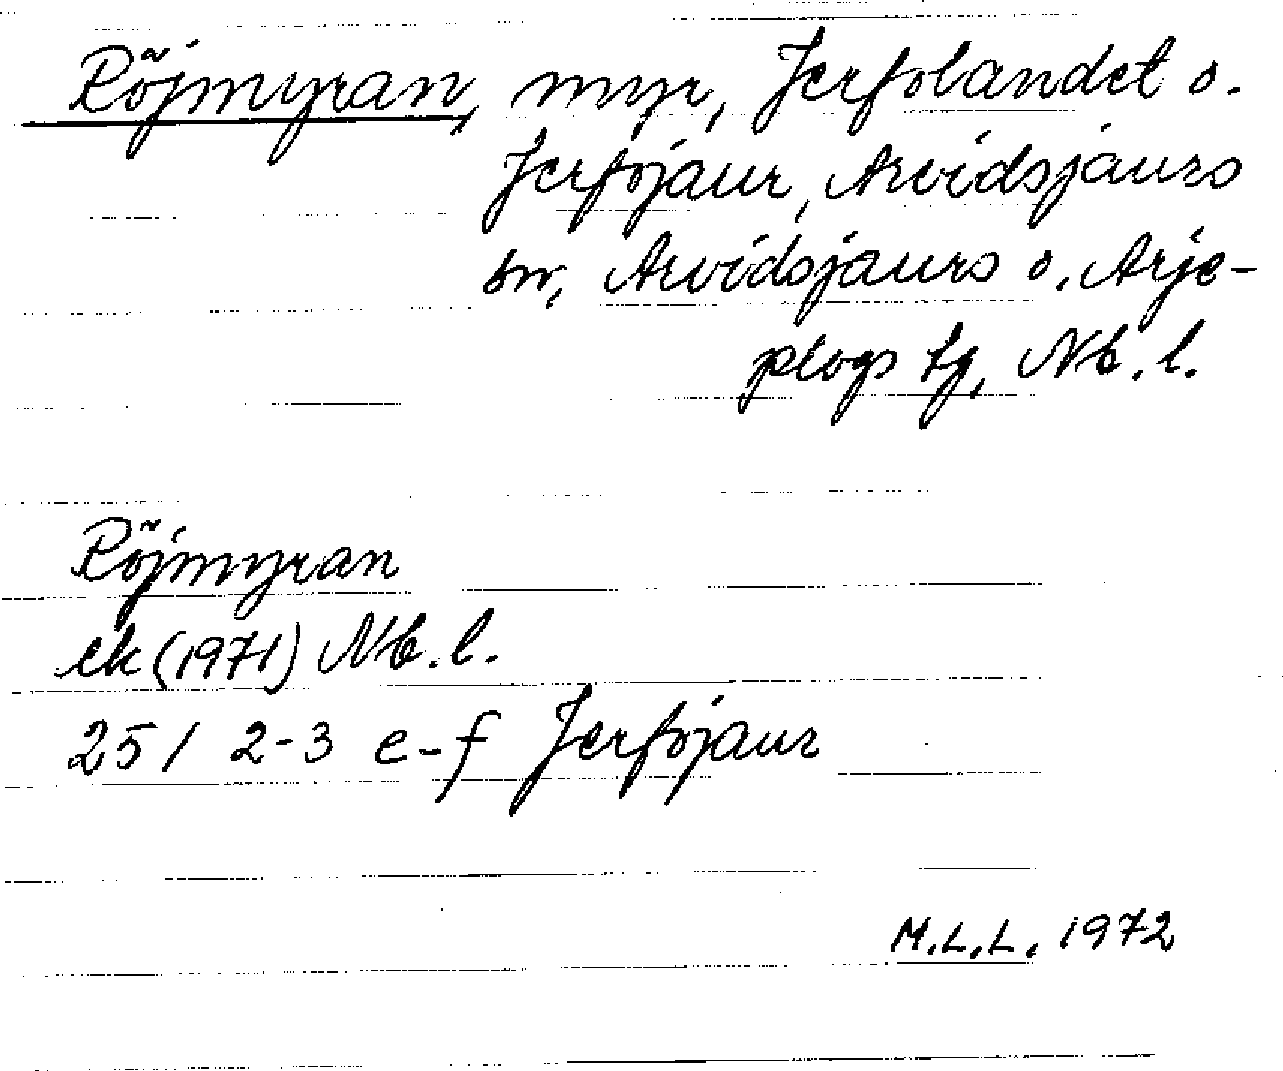 Röjmyran, myr, Jerfolandet o.
Jerfojaur, Arvidsjaurs
sn, Arvidsjaurs o. Arje-
plogs tg, Nb. l.
Röjmyran
ek (1971) Nb. l.
25 I 2-3 e-f Jerfojaur
M.L.L. 1972